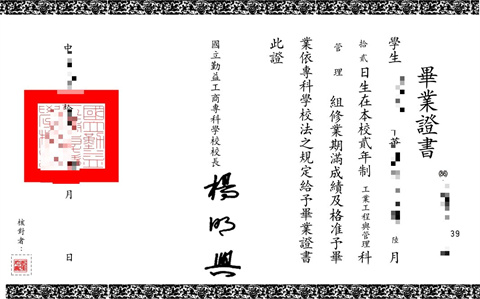 畢業證書
39
學生
陸 月
拾貳日生在本校貳年制 工業工程與管理 科
管理 組修業期滿成績及格准予畢
業依專科學校法之規定給予畢業證書
此證
國立勤益工商專科學校校長
楊明興
中
月
日
核對者：